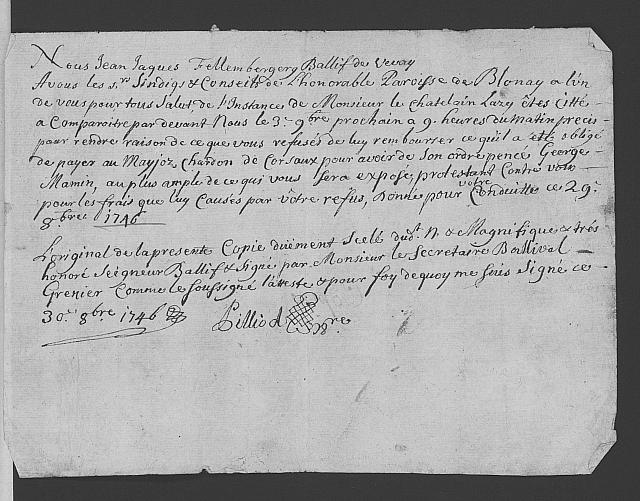 Nous Jean Jaques Fellembergerg Ballif de Vevay
A vous les Srs Sindigs & Conseils de L'honorable Paroisse de Blonay a l'un
de vous pour tous Salut. de l'Instances de Monsieur le Chatelain Luzy êtes Cittés
a Comparoitre par devant Nous le 3e 9bre prochain a 9 heures du Matin precis
pour rendre raison de ce que vous refusés de luy rembourser ce quil a été obligé
de payer au Mayjoz Chardon de Corsaux pour avoir de son ordre pencé George
Mamin, au plus ample de ce qui vous sera exposé, protestant Contre vous
pour les frais que luy Causés par vôtre refus, Donné pour vôtre Conduitte ce 29e
8bre 1746
L'original de la presente Copie duëment Scelé dudt N. & Magnifique & trés
honoré Seigneur Ballif & Signé par Monsieur le Secretaire Ballival
Grenier Comme le soussigné l'atteste & pour foy de quoy me suis Signé ce
30e 8bre 1746 Pilliod